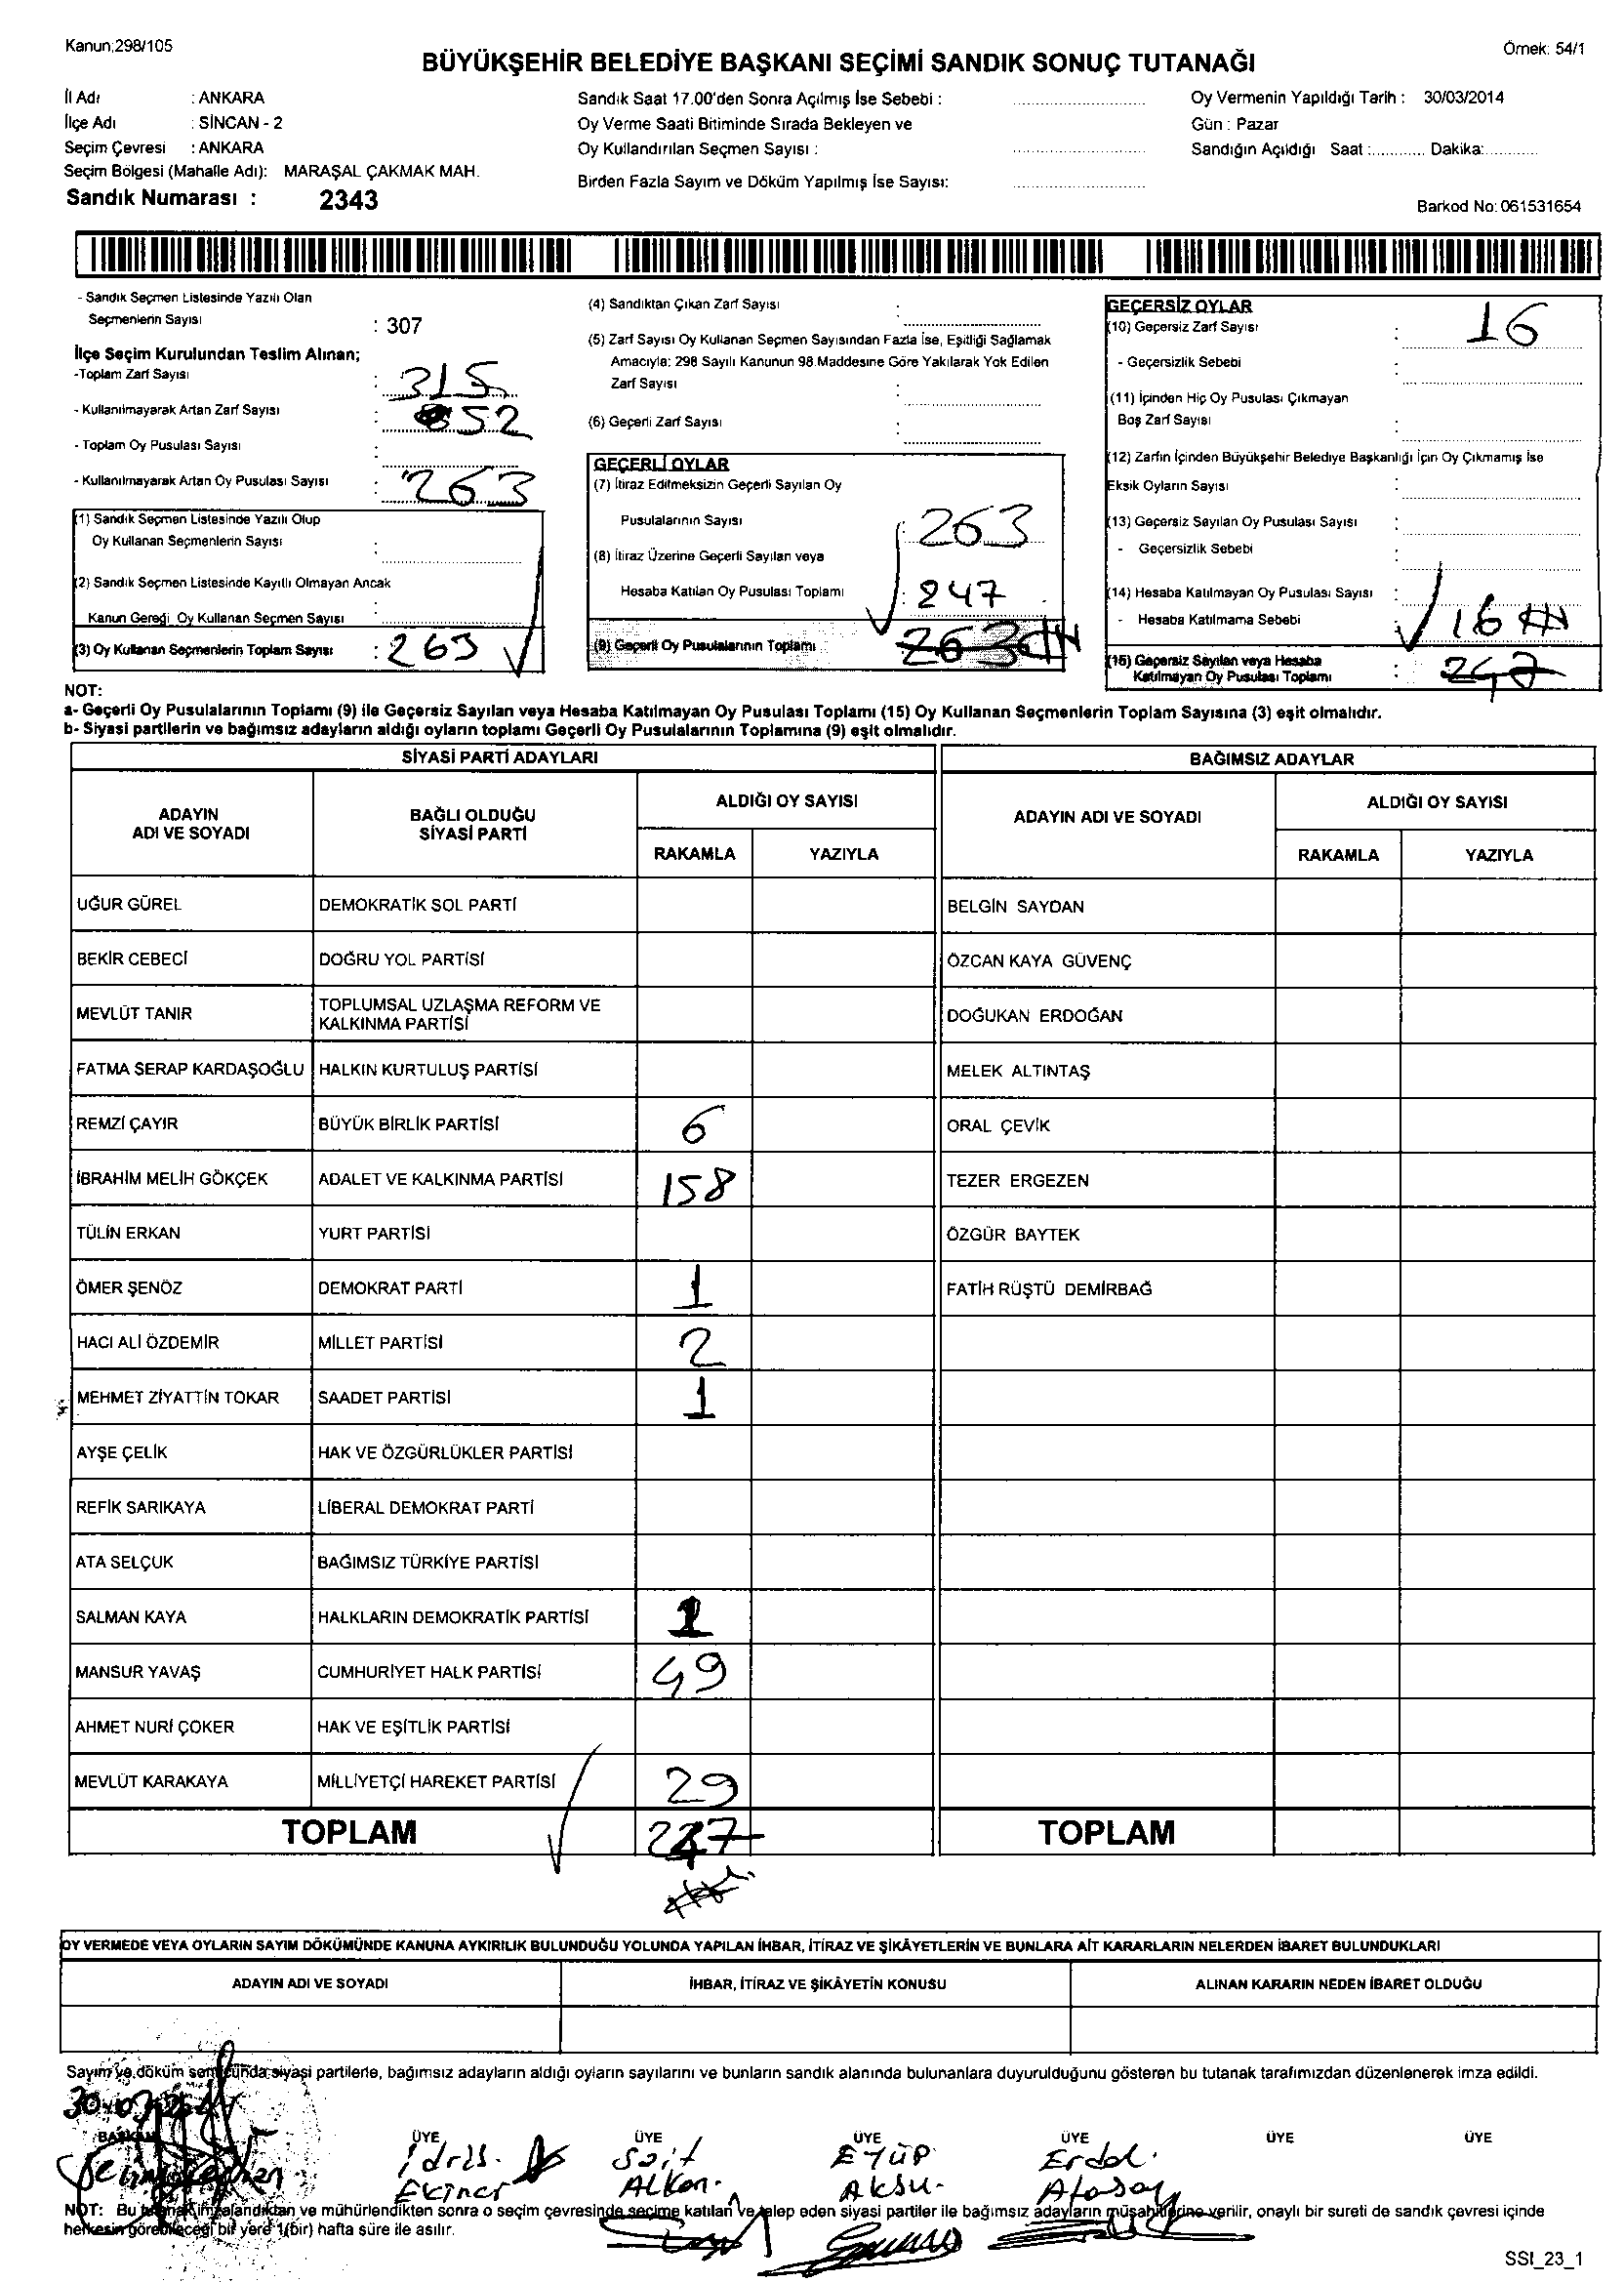 Kanun;298/105
Örnek: 54/1
BÜYÜKŞEHİR BELEDİYE BAŞKANI SEÇİMİ SANDIK SONUÇ TUTANAĞI
İl Adı : ANKARA
İlçe Adı : SİNCAN - 2
Seçim Çevresi : ANKARA
Seçim Bölgesi (Mahalle Adı): MARAŞAL ÇAKMAK MAH.
Sandık Numarası : 2343
Sandık Saat 17.00'den Sonra Açılmış İse Sebebi :
Oy Verme Saati Bitiminde Sırada Bekleyen ve
Oy Kullandırılan Seçmen Sayısı :
Birden Fazla Sayım ve Döküm Yapılmış İse Sayısı:
Oy Vermenin Yapıldığı Tarih : 30/03/2014
Gün : Pazar
Sandığın Açıldığı Saat :............ Dakika:............
Barkod No: 061531654
- Sandık Seçmen Listesinde Yazılı Olan
Seçmenlerin Sayısı : 307
İlçe Seçim Kurulundan Teslim Alınan;
-Toplam Zarf Sayısı : 315
- Kullanılmayarak Artan Zarf Sayısı : 52
- Toplam Oy Pusulası Sayısı :
- Kullanılmayarak Artan Oy Pusulası Sayısı : 263
(1) Sandık Seçmen Listesinde Yazılı Olup
Oy Kullanan Seçmenlerin Sayısı :
(2) Sandık Seçmen Listesinde Kayıtlı Olmayan Ancak
Kanun Gereği Oy Kullanan Seçmen Sayısı :
(3) Oy Kullanan Seçmenlerin Toplam Sayısı : 263
(4) Sandıktan Çıkan Zarf Sayısı :
(5) Zarf Sayısı Oy Kullanan Seçmen Sayısından Fazla İse, Eşitliği Sağlamak
Amacıyla; 298 Sayılı Kanunun 98.Maddesine Göre Yakılarak Yok Edilen
Zarf Sayısı :
(6) Geçerli Zarf Sayısı :
GEÇERLİ OYLAR
(7) İtiraz Edilmeksizin Geçerli Sayılan Oy
Pusulalarının Sayısı : 263
(8) İtiraz Üzerine Geçerli Sayılan veya
Hesaba Katılan Oy Pusulası Toplamı : 247
(9) Geçerli Oy Pusulalarının Toplamı : 263
GEÇERSİZ OYLAR
(10) Geçersiz Zarf Sayısı : 16
- Geçersizlik Sebebi :
(11) İçinden Hiç Oy Pusulası Çıkmayan
Boş Zarf Sayısı :
(12) Zarfın İçinden Büyükşehir Belediye Başkanlığı İçin Oy Çıkmamış İse
Eksik Oyların Sayısı :
(13) Geçersiz Sayılan Oy Pusulası Sayısı :
- Geçersizlik Sebebi
(14) Hesaba Katılmayan Oy Pusulası Sayısı :
- Hesaba Katılmama Sebebi : 16
(15) Geçersiz Sayılan veya Hesaba
Katılmayan Oy Pusulası Toplamı : 247
NOT:
a- Geçerli Oy Pusulalarının Toplamı (9) ile Geçersiz Sayılan veya Hesaba Katılmayan Oy Pusulası Toplamı (15) Oy Kullanan Seçmenlerin Toplam Sayısına (3) eşit olmalıdır.
b- Siyasi partilerin ve bağımsız adayların aldığı oyların toplamı Geçerli Oy Pusulalarının Toplamına (9) eşit olmalıdır.
SİYASİ PARTİ ADAYLARI
BAĞIMSIZ ADAYLAR
ADAYIN ADI VE SOYADI
BAĞLI OLDUĞU SİYASİ PARTİ
ALDIĞI OY SAYISI
ADAYIN ADI VE SOYADI
ALDIĞI OY SAYISI
RAKAMLA YAZIYLA
RAKAMLA YAZIYLA
UĞUR GÜREL DEMOKRATİK SOL PARTİ BELGİN SAYDAN
BEKİR CEBECİ DOĞRU YOL PARTİSİ ÖZCAN KAYA GÜVENÇ
MEVLÜT TANIR TOPLUMSAL UZLAŞMA REFORM VE KALKINMA PARTİSİ DOĞUKAN ERDOĞAN
FATMA SERAP KARDAŞOĞLU HALKIN KURTULUŞ PARTİSİ MELEK ALTINTAŞ
REMZİ ÇAYIR BÜYÜK BİRLİK PARTİSİ 6 ORAL ÇEVİK
İBRAHİM MELİH GÖKÇEK ADALET VE KALKINMA PARTİSİ 158 TEZER ERGEZEN
TÜLİN ERKAN YURT PARTİSİ ÖZGÜR BAYTEK
ÖMER ŞENÖZ DEMOKRAT PARTİ 1 FATİH RÜŞTÜ DEMİRBAĞ
HACI ALİ ÖZDEMİR MİLLET PARTİSİ 2
MEHMET ZİYATTİN TOKAR SAADET PARTİSİ 1
AYŞE ÇELİK HAK VE ÖZGÜRLÜKLER PARTİSİ
REFİK SARIKAYA LİBERAL DEMOKRAT PARTİ
ATA SELÇUK BAĞIMSIZ TÜRKİYE PARTİSİ
SALMAN KAYA HALKLARIN DEMOKRATİK PARTİSİ 1
MANSUR YAVAŞ CUMHURİYET HALK PARTİSİ 49
AHMET NURİ ÇOKER HAK VE EŞİTLİK PARTİSİ
MEVLÜT KARAKAYA MİLLİYETÇİ HAREKET PARTİSİ 29
TOPLAM 247 TOPLAM
OY VERMEDE VEYA OYLARIN SAYIM DÖKÜMÜNDE KANUNA AYKIRILIK BULUNDUĞU YOLUNDA YAPILAN İHBAR, İTİRAZ VE ŞİKÂYETLERİN VE BUNLARA AİT KARARLARIN NELERDEN İBARET BULUNDUKLARI
ADAYIN ADI VE SOYADI İHBAR, İTİRAZ VE ŞİKÂYETİN KONUSU ALINAN KARARIN NEDEN İBARET OLDUĞU
Sayım ve döküm sonucunda siyasi partilerle, bağımsız adayların aldığı oyların sayılarını ve bunların sandık alanında bulunanlara duyurulduğunu gösteren bu tutanak tarafımızdan düzenlenerek imza edildi.
BAŞKAN ÜYE ÜYE ÜYE ÜYE ÜYE ÜYE
İdris Sait Eyüp Erdal
Ekiner Alkan Aksu Atasoy
NOT: Bu tutanak imzalandıktan ve mühürlendikten sonra o seçim çevresinde seçime katılan ve talep eden siyasi partiler ile bağımsız adayların müşahitlerine verilir, onaylı bir sureti de sandık çevresi içinde
herkesin görebileceği bir yere 1(bir) hafta süre ile asılır.
SSI_23_1